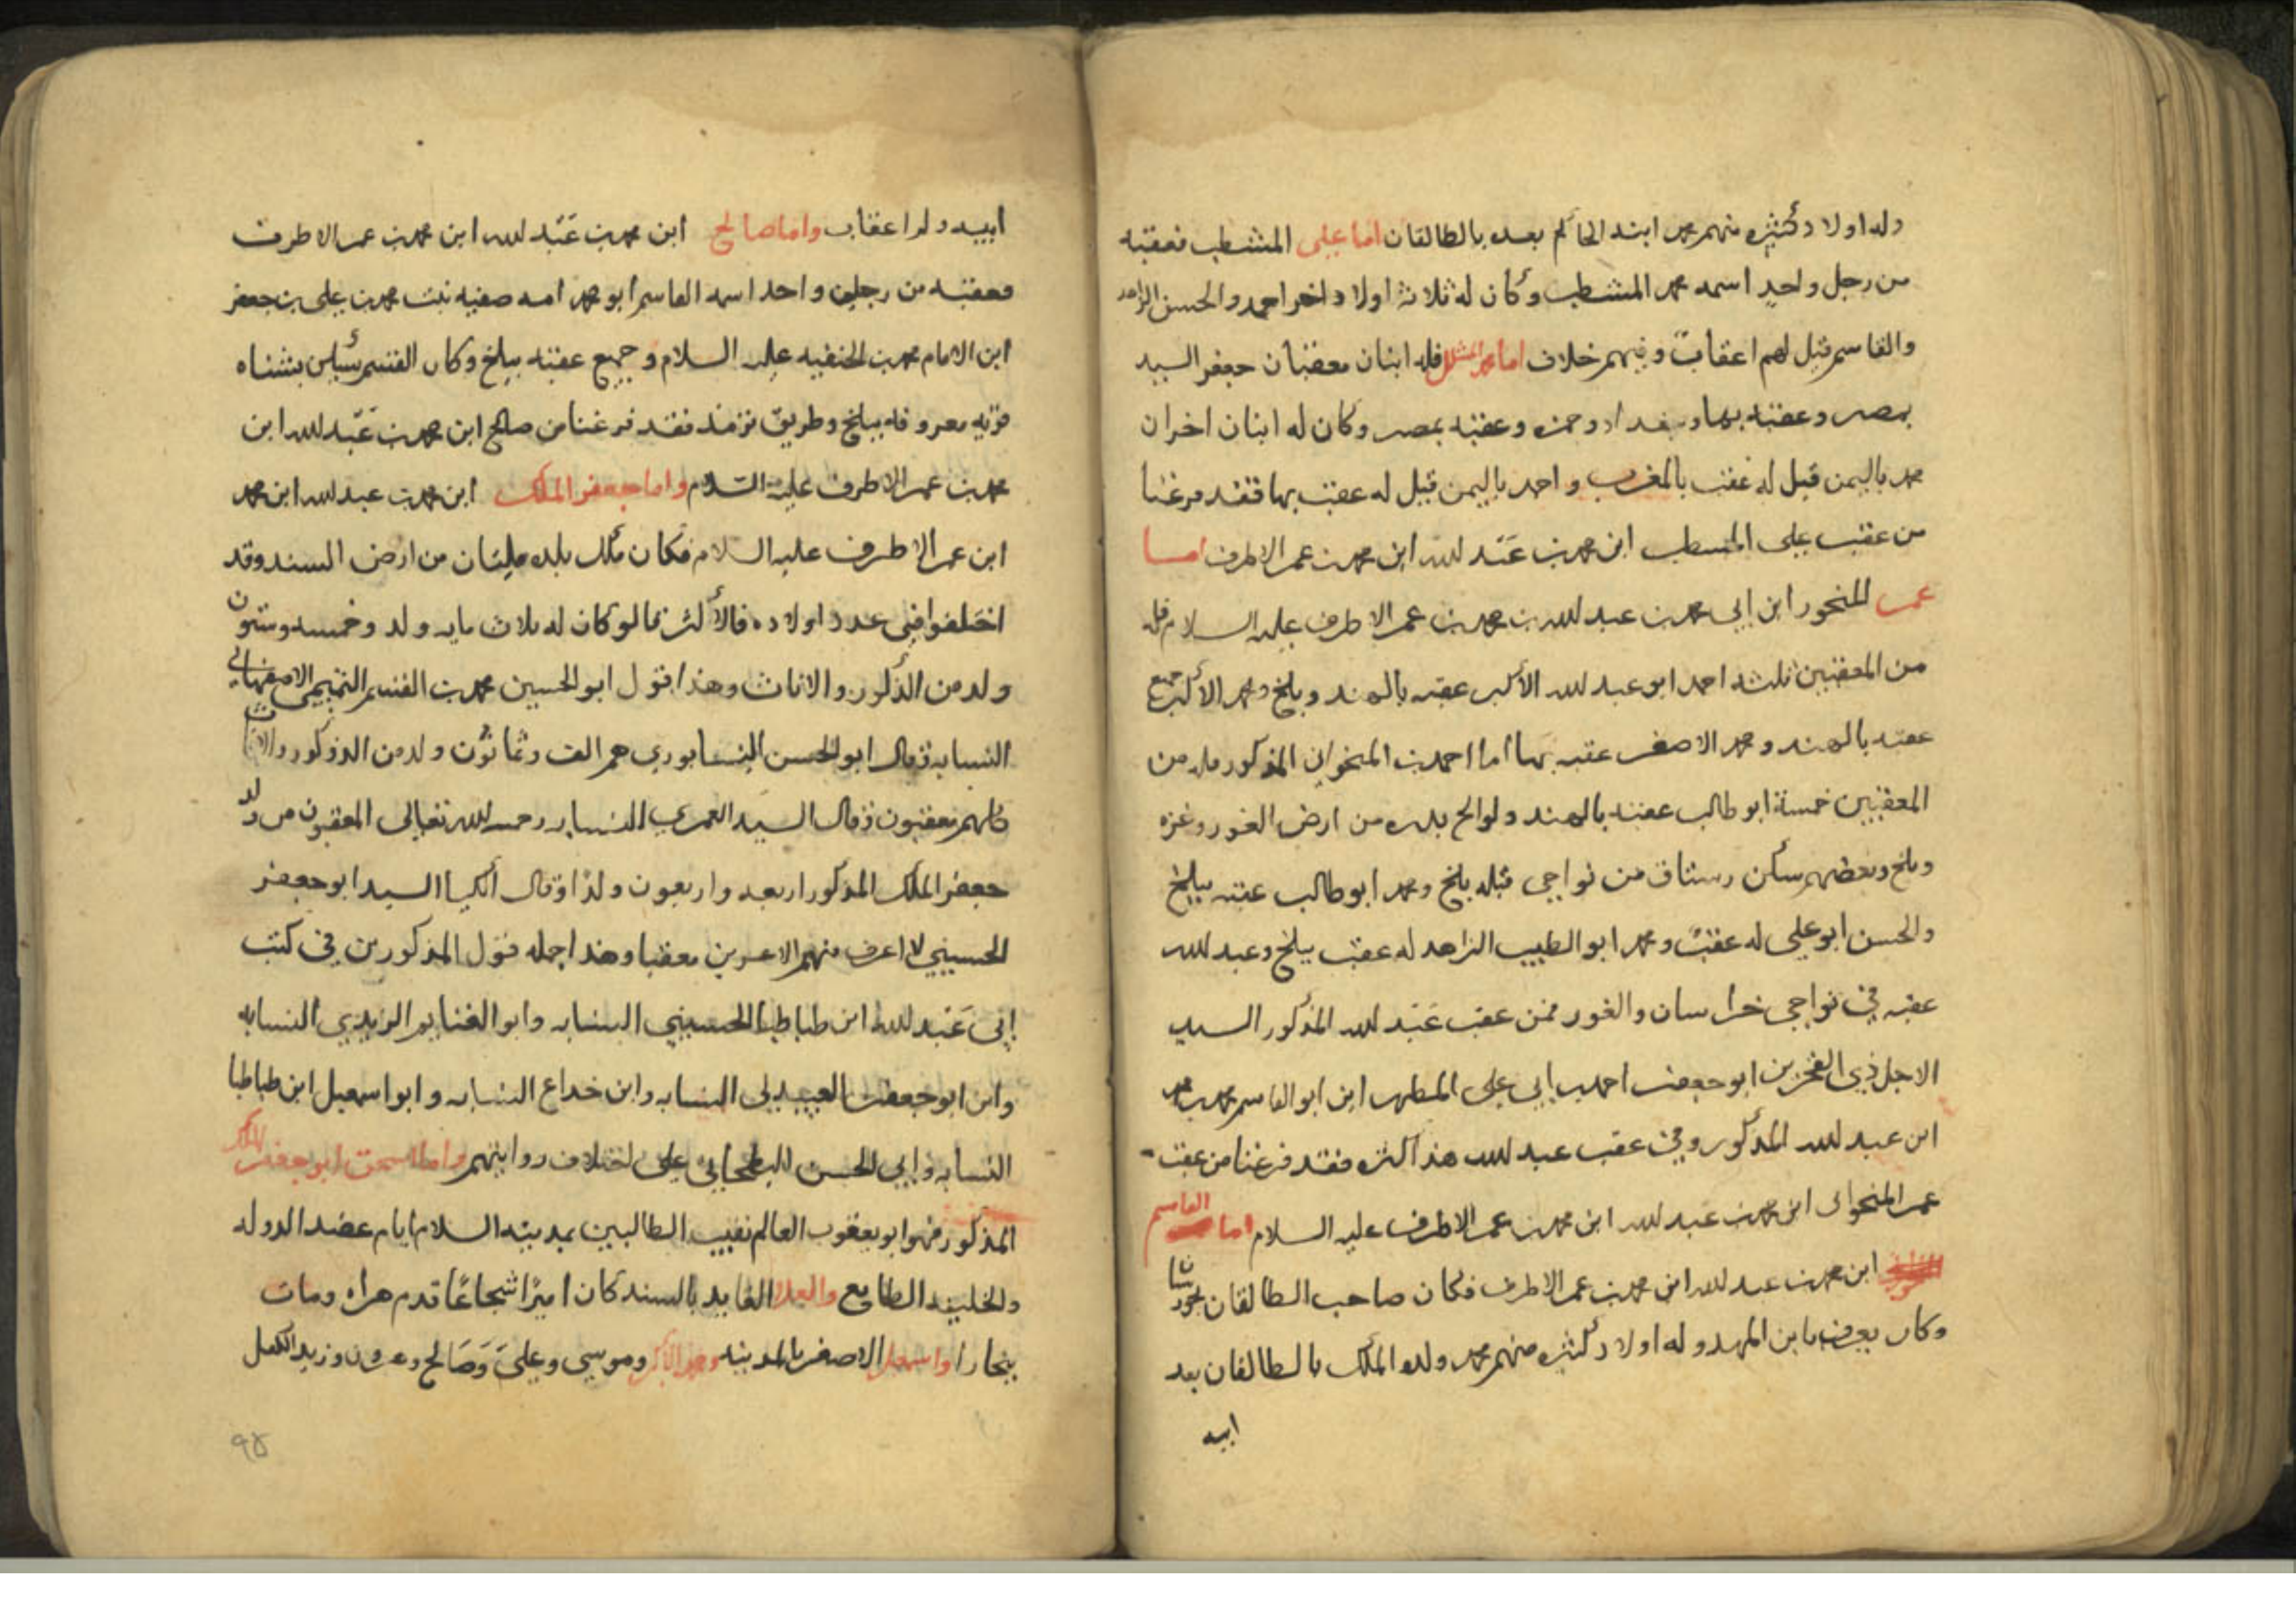 وله اولاد كثيره منهم محمد ابنه الحاكم بعده بالطالقان اما على المشطب فعقبه
من رجل واحد اسمه محمد المشطب وكان له ثلاثة اولاد اخر احمد والحسن الزاهد
والقاسم قيل لهم اعقاب وفيهم خلاف اما محمد المشلل فله ابنان معقبان جعفر السيد
بمصر وعقبه بها وببغداد وحمزه وعقبه بمصر وكان له ابنان اخران
محمد باليمن قيل له عقب بالمغرب واحمد باليمن قيل له عقب بها فقد فرغنا
من عقب على المشطب ابن محمد بن عبد لله ابن محمد بن عمر الاطرف اما
عمر المنحور ابن ابى محمد بن عبد لله بن محمد بن عمر الاطرف عليه السلام فله
من المعقبين ثلثه احمد ابو عبد لله الأكبر عقبه بالهند وبلخ ومحمد الاكبر جميع
عقبه بالهند ومحمد الاصغر عقبه بها اما احمد بن المنحوران المذكور فله من
المعقبين خمسة ابو طالب عقبه بالهند ولوالح بلده من ارض الغور وغزه
وبلخ وبعضهم سكن رستاق من نواحى قبله بلخ ومحمد ابو طالب عقبه ببلخ
والحسن ابو على له عقب ومحمد ابو الطيب الزاهد له عقب ببلخ وعبد لله
عقبه في نواحى خراسان والغور فمن عقب عبد لله المذكور السيد
الاجل ذي الفخرين ابو جعفر احمد بن ابي على المطهر ابن ابو القاسم محمد بن محمد
ابن عبد لله المذكور وفي عقب عبد لله هذا كثره فقد فرغنا من عقب
عمر المنحواى ابن محمد بن عبد لله ابن محمد بن عمر الاطرف عليه السلام اما القاسم
ابن محمد بن عبد لله ابن محمد بن عمر الاطرف فكان صاحب الطالقان
وكان يعرف بابن المهد وله اولاد كثيره منهم محمد ولده الملك بالطالقان بعد
ابيه
ابيه ولد اعقاب واما صالح ابن محمد بن عبد لله ابن محمد بن عمر الاطرف
فعقبه من رجلين واحد اسمه القاسم ابو محمد امه صفيه بنت محمد بن على بن جعفر
ابن الامام محمد بن الحنفيه عليه السلام وجميع عقبه ببلخ وكان القسم
قريه معروفه ببلخ وطريق ترمذ فقد فرغنا من صالح ابن محمد بن عبد لله ابن
محمد بن عمر الاطرف عليه السلام واما جعفر الملك ابن محمد بن عبد لله ابن محمد
ابن عمر الاطرف عليه السلام فكان ملك بلده ملتان من ارض السند وقد
اختلفوا فى عدد اولاده فالأكثر قالو كان له ثلاث مايه ولد وخمسه وستون
ولد من الذكور والاناث وهذا قول ابو الحسين محمد بن القسم التميمى الاصفهاني
النسابه وقال ابو الحسن النيسابوري هم الف وثمانون ولد من الذكور والاناث
كلهم معقبون وقال السيد العمري النسابه رحمه لله تعالى المعقبون من ولد
جعفر الملك المذكور اربعه واربعون ولدًا وقال الكيا السيد ابو جعفر
الحسيني لا اعرف منهم الا عشرين معقبا وهذا جمله قول المذكورين في كتب
ابى عبد لله ابن طباطبا الحسيني النسابه وابو الغنايم الزيدي النسابه
وابن ابو جعفر العبيدلى النسابه وابن خداع النسابه وابو اسمعيل ابن طباطبا
النسابه وابي الحسن البطحاني على اختلاف روايتهم واما اسحق ابو جعفر الملك
المذكور فهو ابو يعقوب العالم نقيب الطالبين بمدينه السلام ايام عضد الدوله
والخليفه الطايع والعلا القايد بالسند كان اميرًا شجاعًا قدم هراه ومات
ببخارا واسمعيل الاصغر بالمدينه ومحمد الأكبر وموسى وعلى وصالح وعون وزيد الكل
٩٥